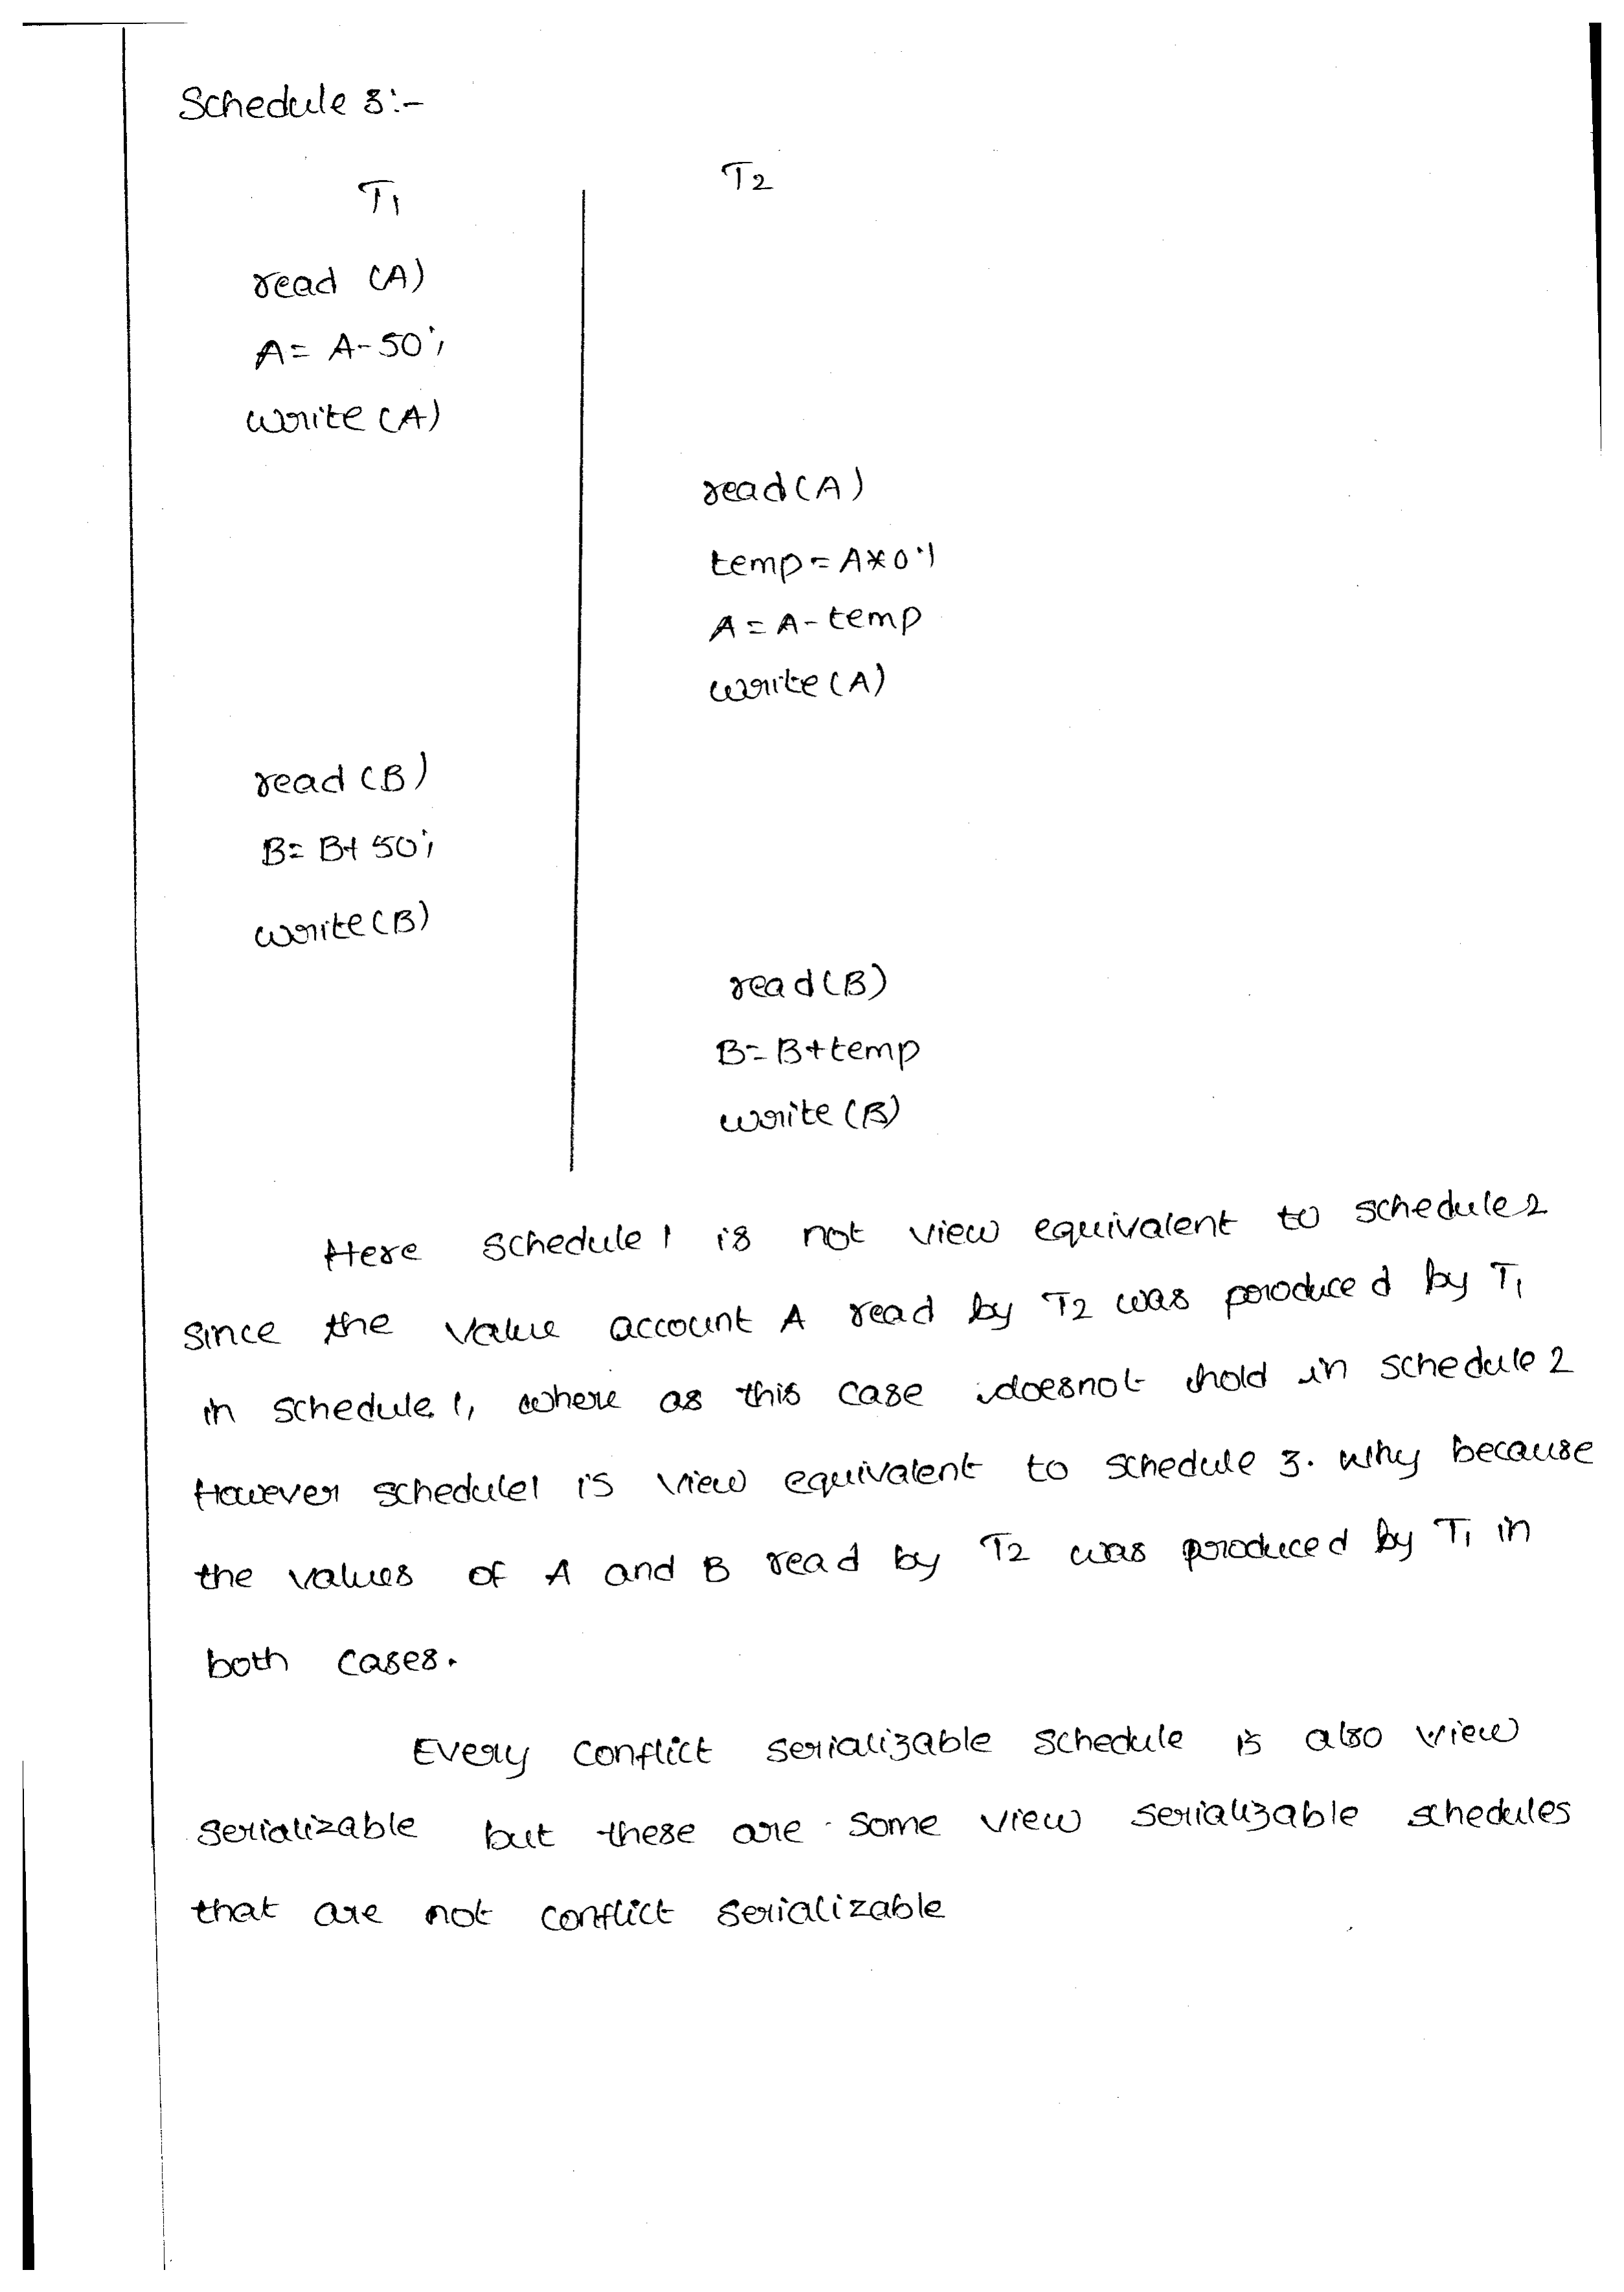 Schedule 3:-
T1 T2
read (A)
A= A-50;
write (A)
read(A)
temp=A*0.1
A=A-temp
write(A)
read (B)
B= B+ 50;
write(B)
read(B)
B=B+temp
write (B)
Here schedule 1 is not view equivalent to schedule2
since the value account A read by T2 was produced by T1
in schedule 1, where as this case doesnot hold in schedule 2
However schedule1 is view equivalent to schedule 3. why because
the values of A and B read by T2 was produced by T1 in
both cases.
Every conflict serializable schedule is also view
serializable but these are some view serializable schedules
that are not conflict serializable